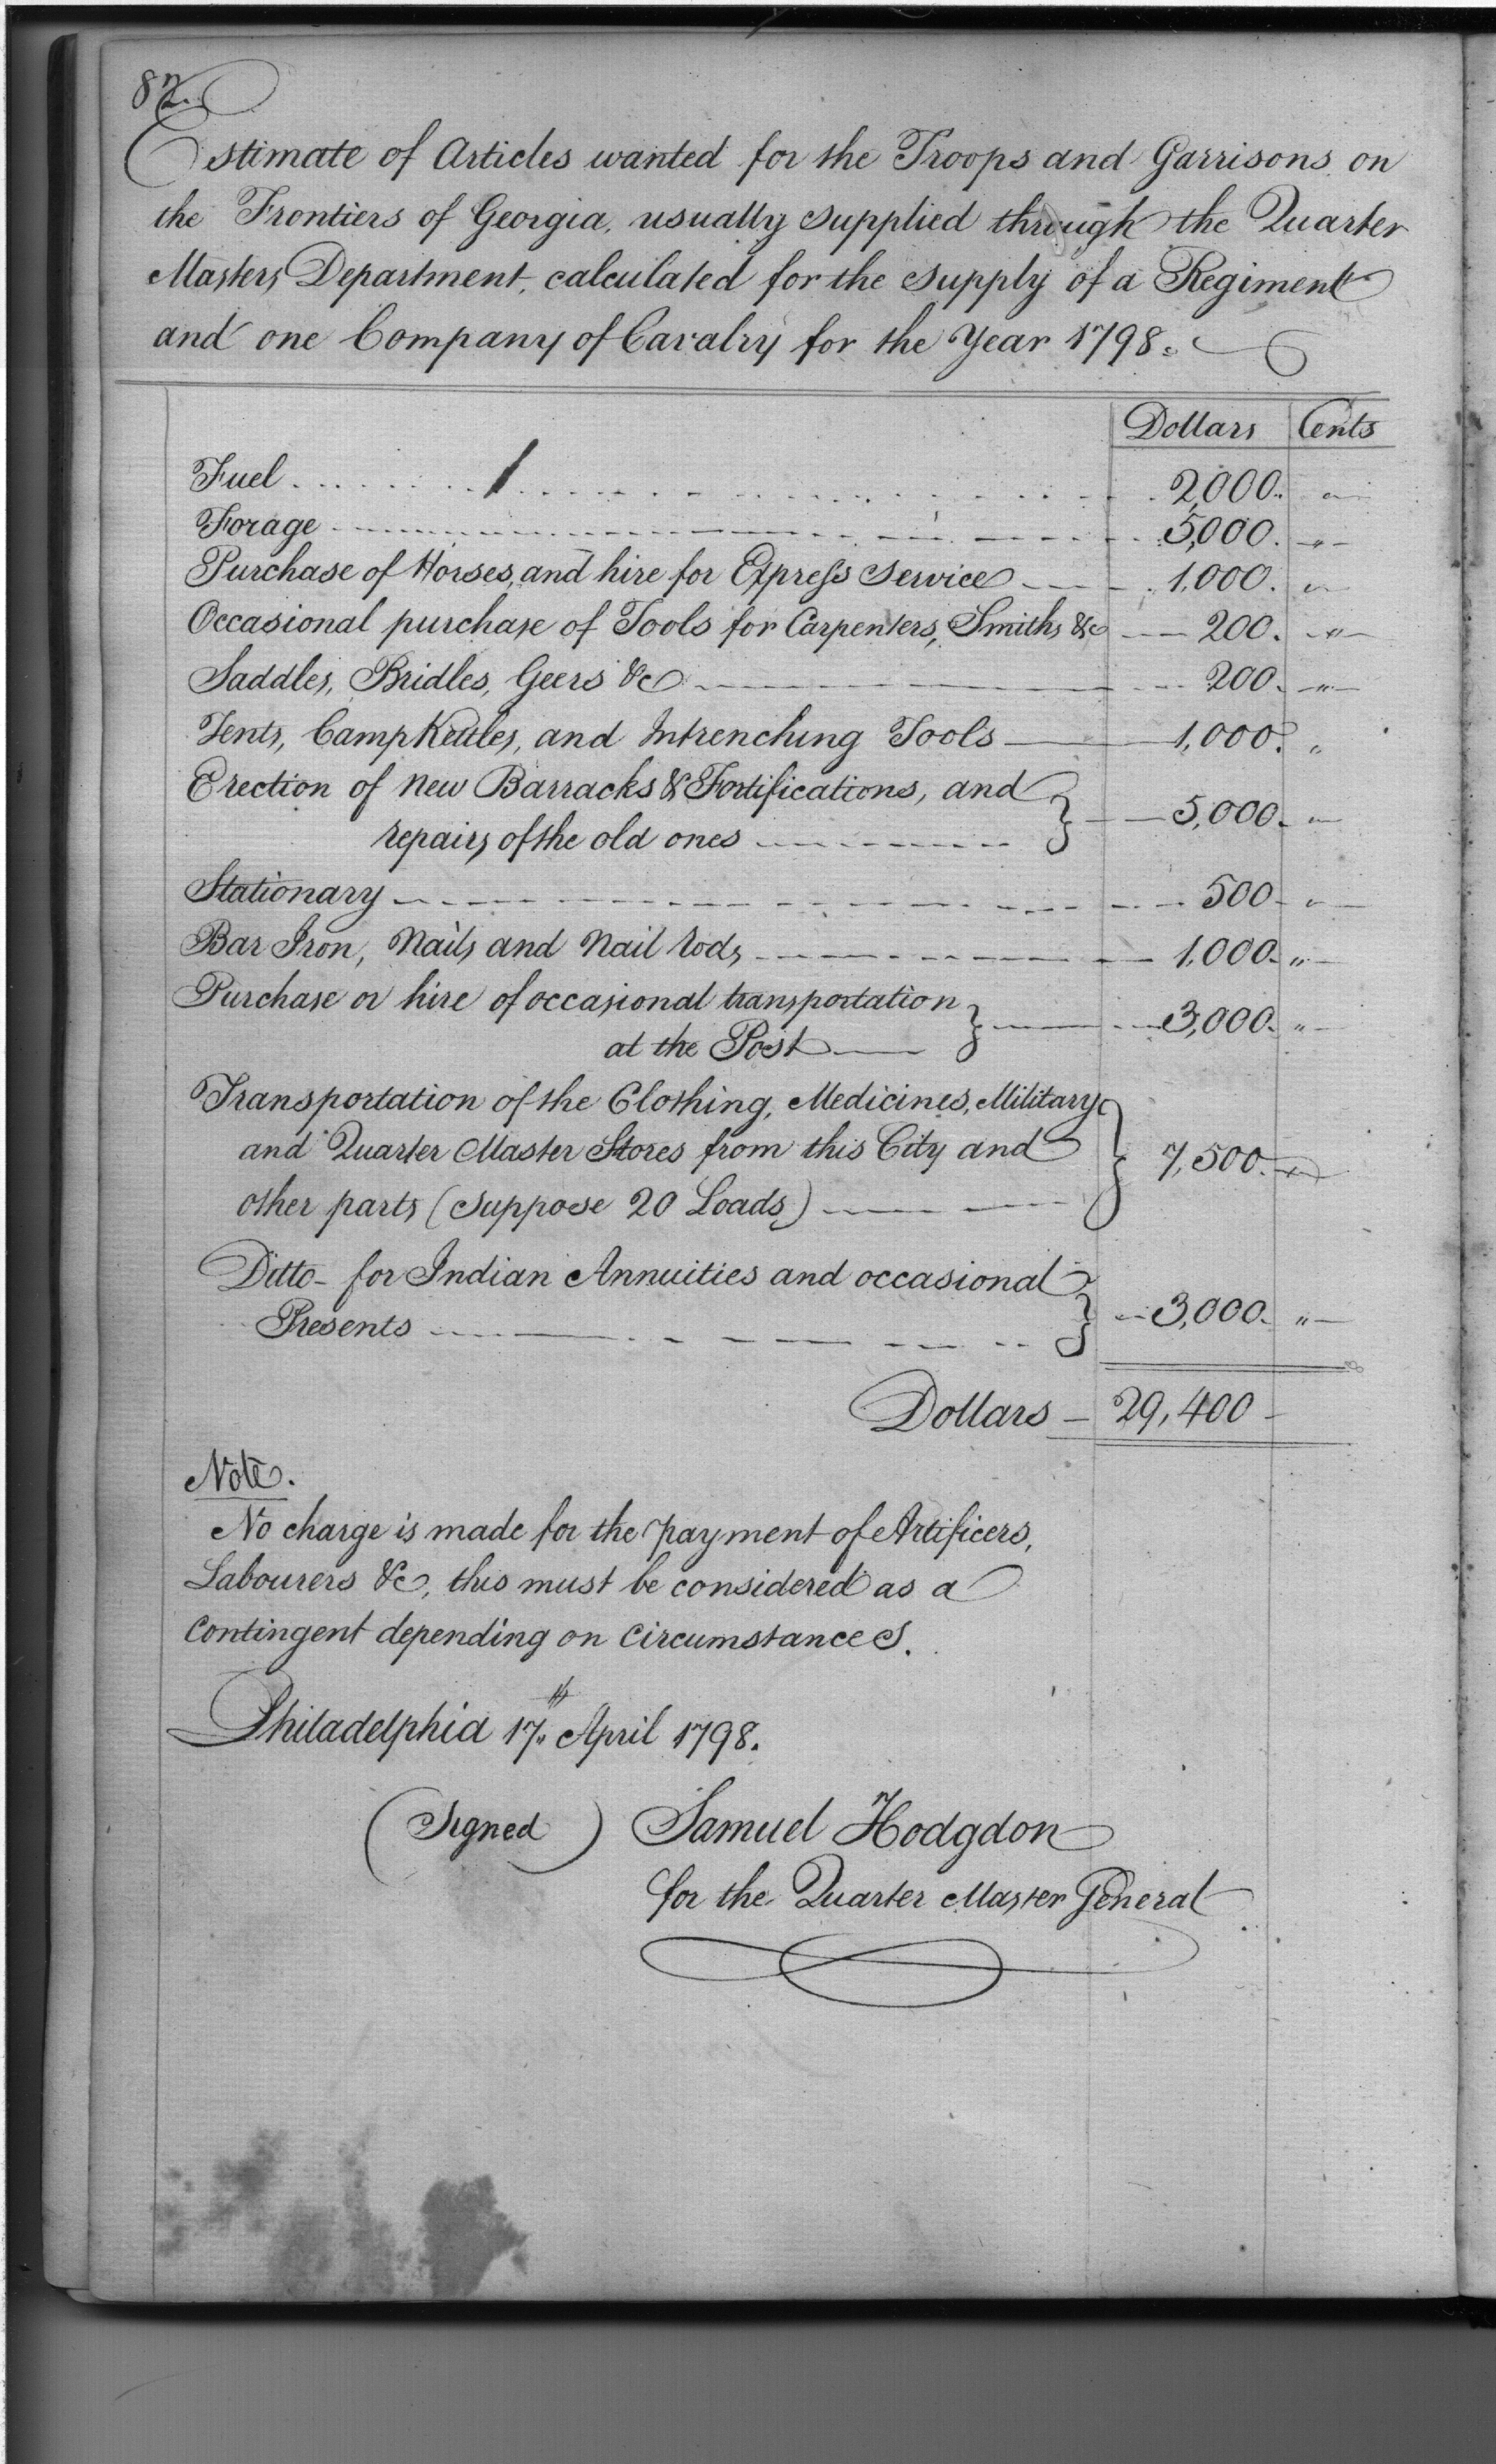 82.
Estimate of Articles wanted for the Troops and Garrisons on
the Frontiers of Georgia, usually supplied through the Quarter
Masters Department, calculated for the supply of a Regiment
and one Company of Cavalry for the Year 1798.
Dollars Cents
Fuel 2,000. "
Forage 5,000. "
Purchase of Horses, and hire for Express Service 1,000. "
Occasional purchase of Tools for Carpenters, Smiths &c 200. "
Saddles, Bridles, Geers &c 200. "
Tents, Camp Kettles, and Intrenching Tools 1,000. "
Erection of new Barracks & Fortifications, and
repairs of the old ones 5,000. "
Stationary 500 "
Bar Iron, Nails and Nail rods 1,000. "
Purchase or hire of occasional transportation
at the Post 3,000. "
Transportation of the Clothing, Medicines, Military
and Quarter Master Stores from this City and 7,500. "
other parts (suppose 20 Loads)
Ditto - for Indian Annuities and occasional
Presents 3,000. "
Dollars - 29,400 -
Note.
No charge is made for the payment of Artificers,
Labourers &c, this must be considered as a
Contingent depending on Circumstances.
Philadelphia 17th April 1798.
(Signed) Samuel Hodgdon
for the Quarter Master General